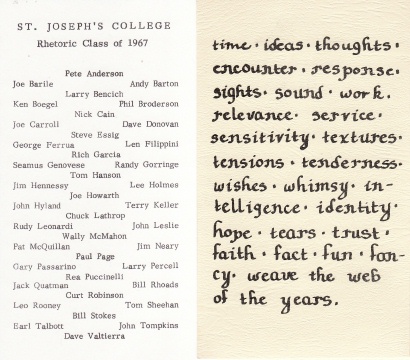 ST. JOSEPH'S COLLEGE
Rhetoric Class of 1967
Pete Anderson
Joe Barile Andy Barton
Larry Bencich
Ken Boegel Phil Broderson
Nick Cain
Joe Carroll Dave Donovan
Steve Essig
George Ferrua Len Filippini
Rich Garcia
Seamus Genovese Randy Gorringe
Tom Hanson
Jim Hennessy Lee Holmes
Joe Howarth
John Hyland Terry Keller
Chuck Lathrop
Rudy Leonardi John Leslie
Wally McMahon
Pat McQuillan Jim Neary
Paul Page
Gary Passarino Larry Percell
Rea Puccinelli
Jack Quatman Bill Rhoads
Curt Robinson
Leo Rooney Tom Sheehan
Bill Stokes
Earl Talbott John Tompkins
Dave Valtierra
time · ideas · thoughts ·
encounter · response ·
sights · sound · work ·
relevance · service ·
sensitivity · textures ·
tensions · tenderness ·
wishes · whimsy · in-
telligence · identity ·
hope · tears · trust ·
faith · fact · fun · fan-
cy · weave the web
of the years.